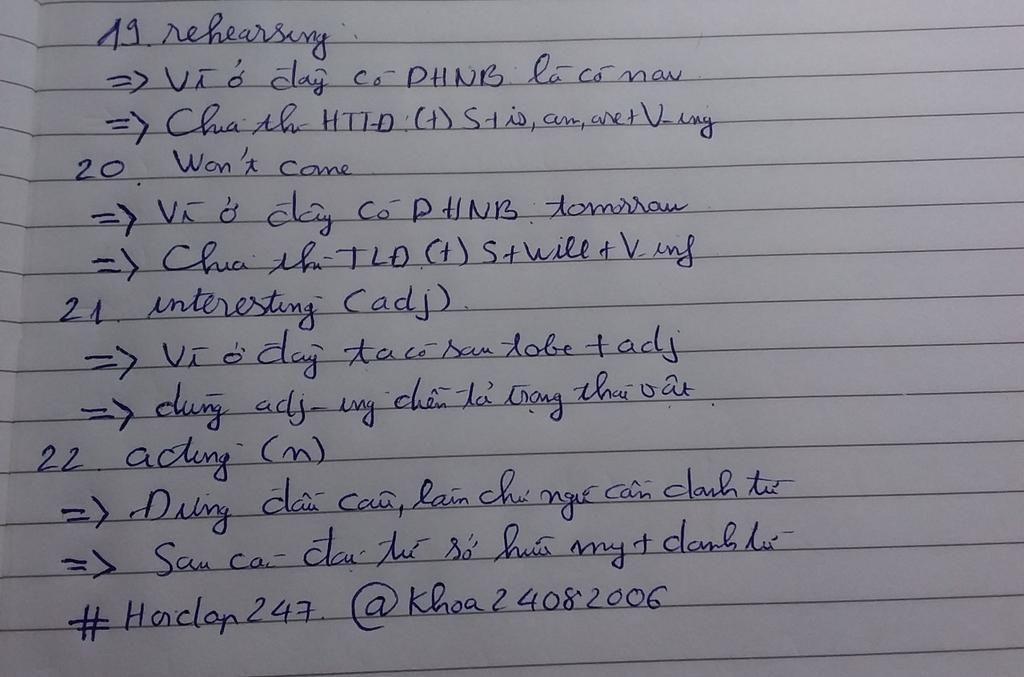 19. rehearsing.
=> Vì ở đây có DHNB là có now
=> Chia thì HTTD: (+) S + is, am, are + V-ing
20. Won't come
=> Vì ở đây có DHNB: tomorrow
=> Chia thì TLĐ (+) S + will + V-inf
21. interesting (adj).
=> Vì ở đây ta có sau tobe + adj
=> dùng adj-ing diễn tả trạng thái vật.
22. acting (n)
=> Đứng đầu câu, làm chủ ngữ cần danh từ
=> Sau các đại từ sở hữu my + danh từ
# Hoidap247. @Khoa24082006